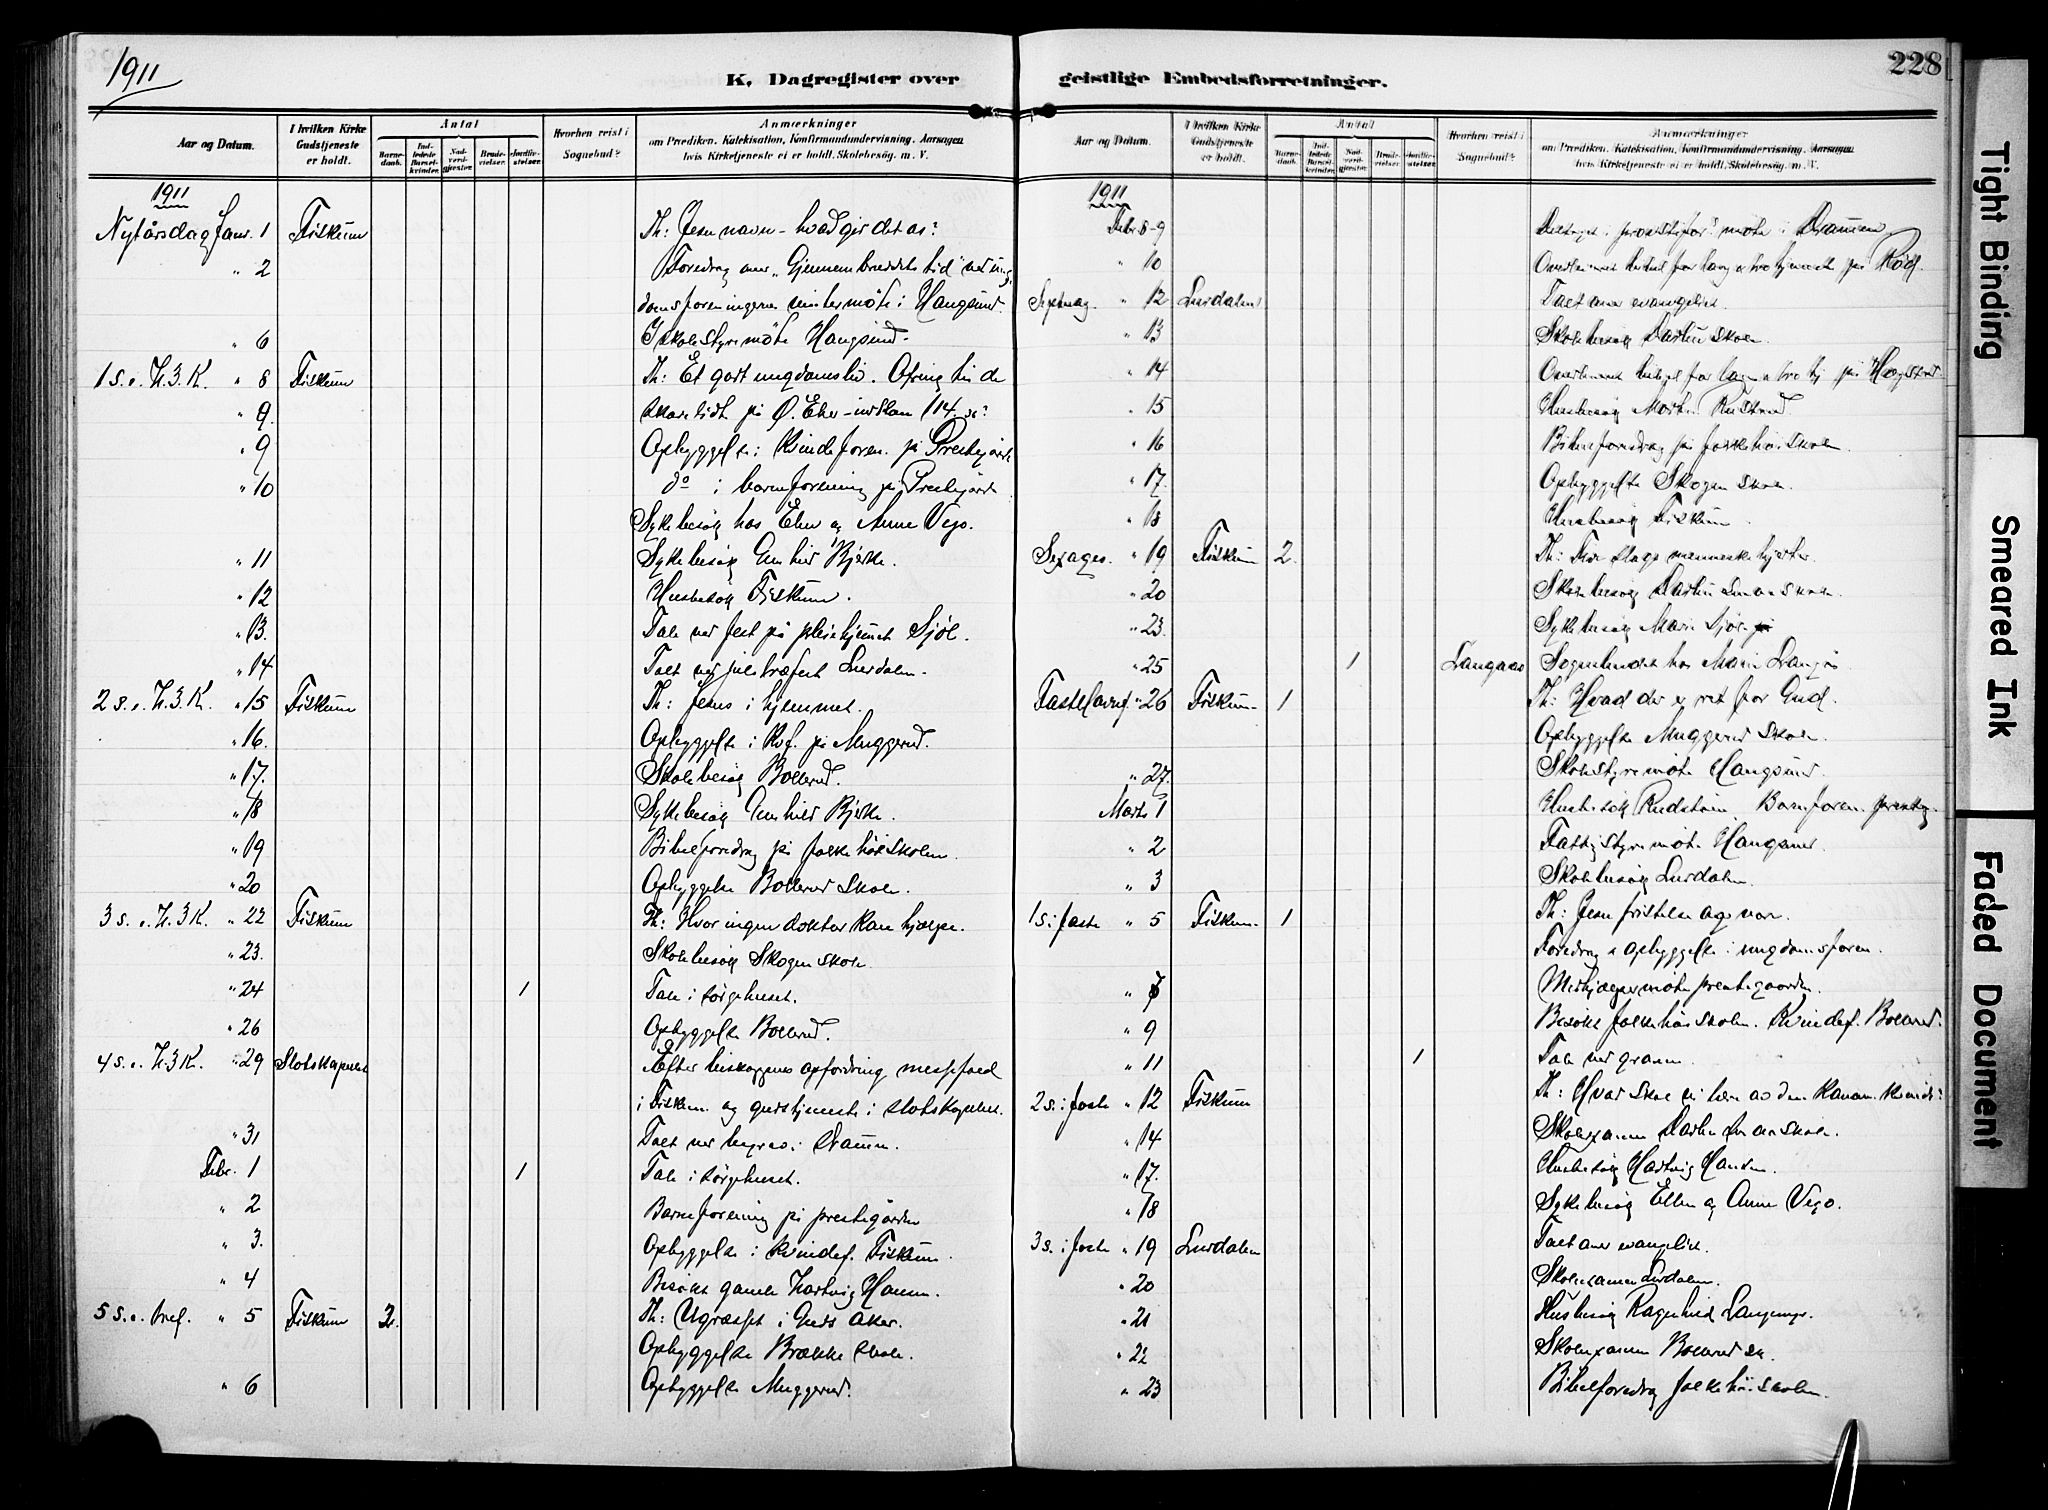 1911
K. Dagregister over
Aar og Datum.
I hvilken Kirke Gudstjeneste er holdt.
Antal
Barne-daab.
Ind-ledede Barsel-kvinder.
Nad-verd-gjester.
Brude-vielser.
Jordfæ-stelser.
Hvorhen reist i Sognebud?
Anmærkninger
om Prædiken, Katekisation, Konfirmandundervisning, Aarsagen
hvis Kirketjeneste ei er holdt, Skolebesøg m. V.
1911
Nytårsdag Janr. 1 Fiskum Th: Jesu navn – hvad gir det os?
" 2 Foredrag over "Gjennembruddets tid" ved ung
domsforeningernes vintermøte i Hangsund.
" 6 Skolestyremøte Hangsund.
1 s. e. H. 3. K. " 8 Fiskum Th: Et godt ungdomsliv. Ofring til de
" 9. skadelidt på Ø. Eker – indkom 114
" 9 Opbyggelse i Kvindeforen. på Prestegård
" 10 do i barneforening på Prestegård
Sykebesøg hos Ellen og Anne Vego.
" 11 Sykebesøg Gunhild Bjerke.
" 12 Husbesøk Fiskum.
" 13. Tale ved fest på pleiehjemmet Sjøl.
" 14 Talt ved juletræfest Lurdalen.
2 s. e. H. 3. K. " 15 Fiskum Th: Jesus i hjemmet.
" 16. Opbyggelse i Kvf. på Muggerud.
" 17. Skolebesøg Bollerud.
" 18 Sykebesøg Gunhild Bjerke.
" 19 Bibelforedrag på folkehøiskolen.
" 20 Opbyggelse Bollerud Skole.
3 s. e. H. 3 K. " 22 Fiskum Th: Hvor ingen doktor kan hjælpe.
" 23. Skolebesøg Skogen skole.
" 24 1 Tale i sørgehuset.
" 26 Opbyggelse Bollerud.
4 s. e. H. 3 K. " 29 Slotskapellet Efter biskoppens opfordring messefald
i Fiskum og gudstjeneste i slotskapellet.
" 31 Talt ved begrav. i Drammen.
Febr. 1 1 Tale i sørgehuset.
" 2 Barneforening på prestegården
" 3. Opbyggelse i kvindef. Fiskum.
" 4 Besøkt gamle Hartvig Hansen.
5 s. e. " 5 Fiskum 2. Th: Ugræsset i Guds aker.
Opbyggelse Brække skole.
" 6 Opbyggelse Muggerud.
geistlige Embedsforretninger.
228
Aar og Datum.
I hvilken Kirke Gudstjeneste er holdt.
Antal
Barne-daab.
Ind-ledede Barsel-kvinder.
Nad-verd-gjester.
Brude-vielser.
Jordfæ-stelser.
Hvorhen reist i Sognebud?
Anmærkninger
om Prædiken, Katekisation, Konfirmandundervisning, Aarsagen
hvis Kirketjeneste ei er holdt, Skolebesøg m. V.
1911
Febr. 8-9 møte i Drammen
" 10 for lang og tro tjeneste på Rød.
Septuag " 12 Lurdalen Talt over evangeliet.
" 13 Skolebesøg Darbu skole.
" 14 for lang og tro tj på Hogstad
" 15 Husbesøg Morten Rustand.
" 16 Bibelforedrag på folkehøiskolen
" 17. Opbyggelse Skogen skole.
" 18 Husbesøg Fiskum.
Sexages. " 19 Fiskum 2. Th: Fire slags menneskehjerter.
" 20 Skolebesøg Darbu skole.
" 23. Sykebesøg Marie Sjøl
" 25 1 Langaas Sognebudet hos Marie Langås
Fastelavnss. " 26 Fiskum 1 Th: Hvad der er ret for Gud.
Opbyggelse Muggerud Skole.
" 27. Skolestyremøte Hangsund.
Marts 1 Husbesøk Rudstøen. Barneforen. presteg.
" 2 Fattigstyremøte Hangsund.
" 3 Skolebesøg Lurdalen.
1 s. i faste " 5 Fiskum. 1 Th: Jesu fristelse og vor.
Foredrag og opbyggelse i ungdomsforen.
" 7 Medhjælpermøte prestegaarden.
" 9 Besøkt folkehøiskolen. Kvindef. Bollerud.
" 11 1 Tale ved graven.
2 s. i faste " 12 Fiskum Th: Hvad skal vi lære av den kanan. kvinde?
" 14 Skoleexamen Darbu skole.
" 17. Husbesøg Hartvig Hansen.
" 18 Sykebesøg Ellen og Anne Vego.
3 s. i faste " 19 Lurdalen Talt over evangeliet.
" 20 Skoleexamen Lurdalen.
" 21 Husbesøg Ragnhild Langemyr.
" 22 Skoleexamen Bollerud sk.
" 23 Bibelforedrag folkehøiskolen.
Tight Binding
Smeared Ink
Faded Document